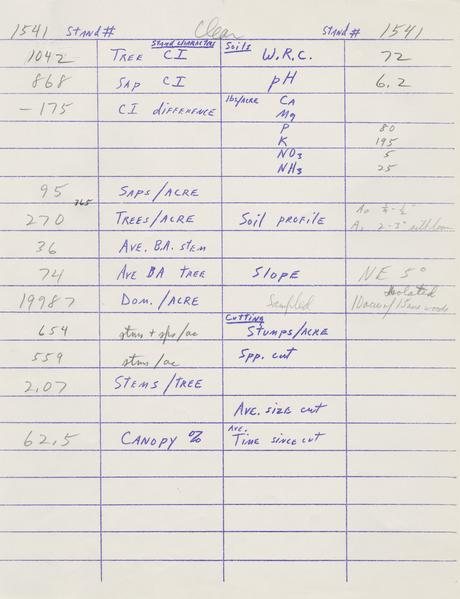 1541 STAND# Clear STAND# 1541
STAND CHARACTERS Soils
1042 TREE CI W.R.C. 72
868 SAP CI pH 6.2
-175 CI DIFFERENCE lbs/ACRE CA
Mg
P 80
K 195
NO3 5
NH3 25
95 SAPS/ACRE
365
270 TREES/ACRE Soil PROFILE A0 ¼-½"
A1 2-3" silt loam
36 AVE. B.A. STEM
74 AVE BA TREE SLOPE NE 5°
19987 DOM./ACRE Sampled Isolated
10 acres/15 ans woods
CUTTING
654 stms + sps/ac STUMPS/ACRE
559 stms/ac Spp. CUT
2.07 STEMS/TREE
AVE. SIZE CUT
62.5 CANOPY % AVE. TIME SINCE CUT